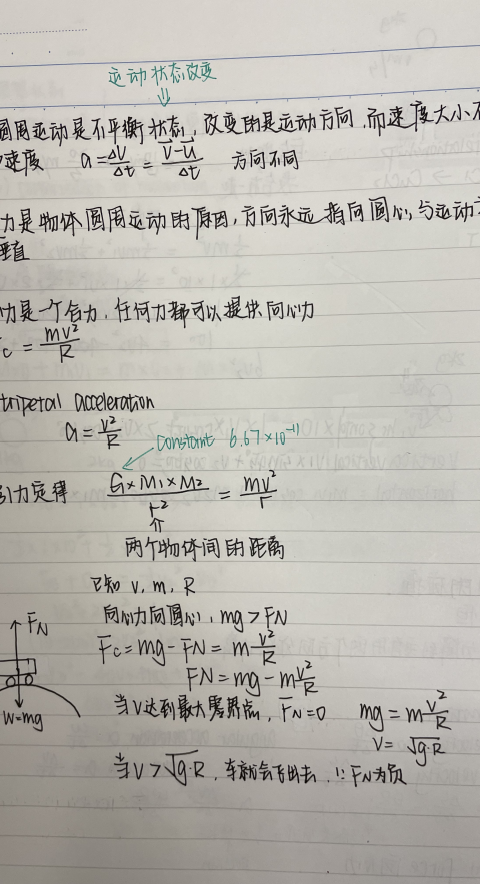 运动状态改变
⇓
圆周运动是不平衡状态, 改变的是运动方向, 而速度大小不
速度 a = ΔV/Δt = (V⃗-U⃗)/Δt 方向不同
力是物体圆周运动的原因, 方向永远指向圆心, 与运动
垂直
力是一个合力, 任何力都可以提供向心力
c = mv²/R
tripetal acceleration
a = v²/R
constant 6.67×10⁻¹¹
引力定得 (G×M₁×M₂)/r² = mv²/r
⇑
两个物体间的距离
已知 v, m, R
向心力向圆心, mg > FN
FN
Fc = mg - FN = m v²/R
FN = mg - m v²/R
W=mg
当V达到最大零界点, FN=0 mg = m v²/R
v = √g·R
当V>√g·R, 车就会飞出去, ∵ FN为负